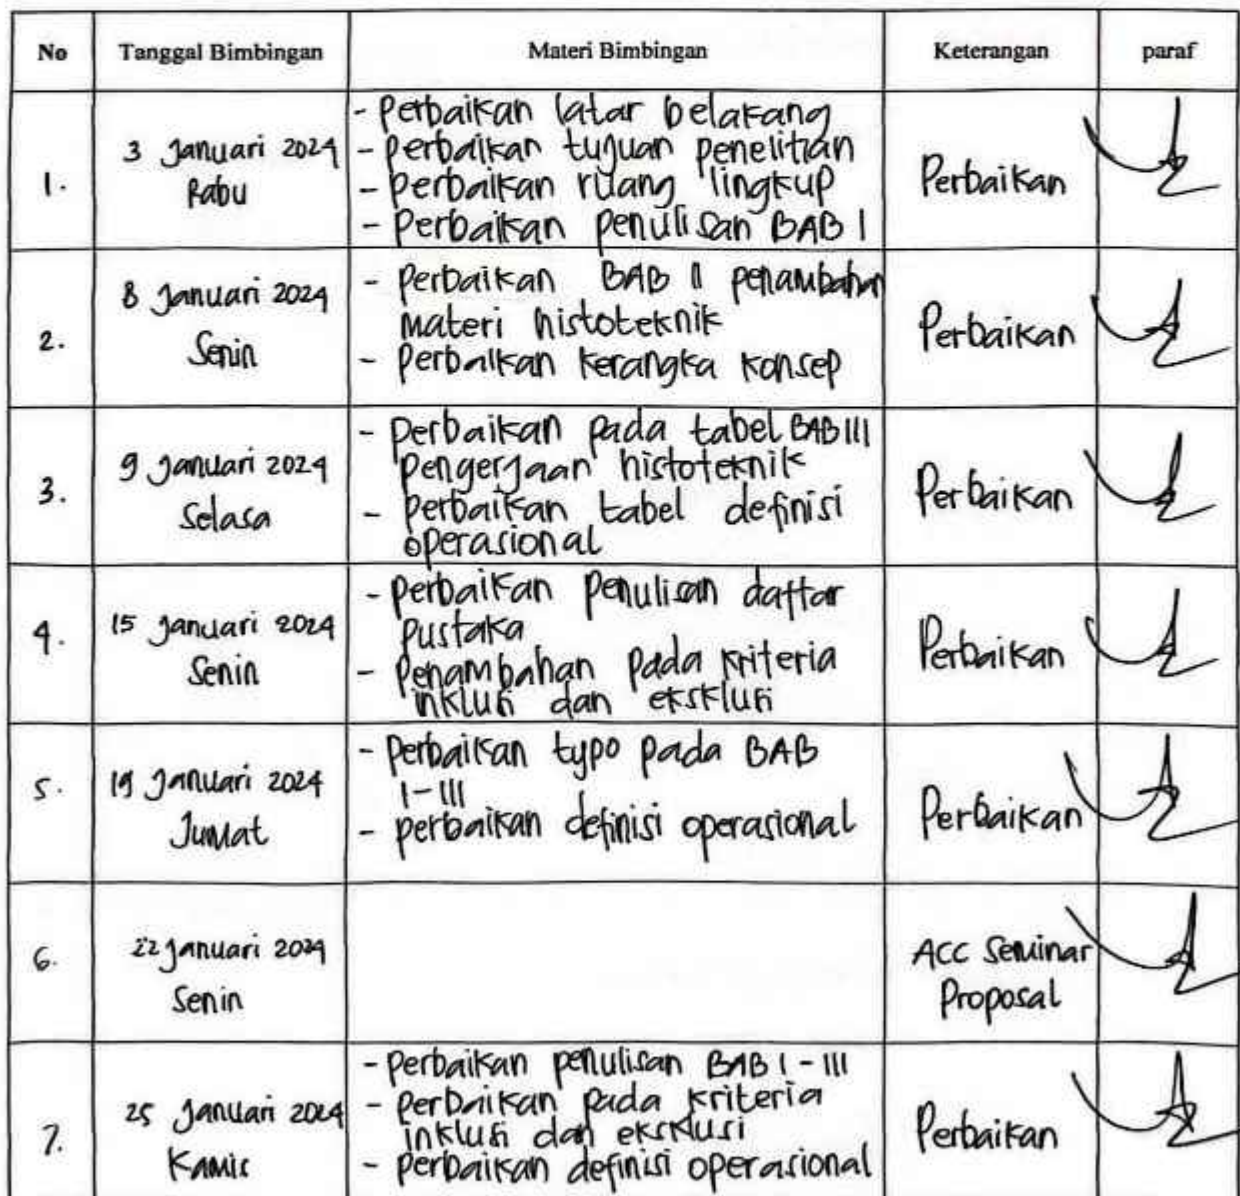 No Tanggal Bimbingan Materi Bimbingan Keterangan paraf
1. 3 Januari 2024 Rabu
- Perbaikan latar belakang
- perbaikan tujuan penelitian
- perbaikan ruang lingkup
- Perbaikan penulisan BAB I
Perbaikan
2. 8 Januari 2024 Senin
- perbaikan BAB II penambahan
materi histoteknik
- perbaikan kerangka konsep
Perbaikan
3. 9 Januari 2024 Selasa
- perbaikan pada tabel BAB III
pengerjaan histoteknik
- perbaikan tabel definisi
operasional
Perbaikan
4. 15 Januari 2024 Senin
- perbaikan penulisan daftar
pustaka
- Penambahan pada kriteria
inklusi dan eksklusi
Perbaikan
5. 19 Januari 2024 Jumat
- perbaikan typo pada BAB
I-III
- perbaikan definisi operasional
Perbaikan
6. 22 Januari 2024 Senin
ACC Seminar
Proposal
7. 25 Januari 2024 Kamis
- perbaikan penulisan BAB I - III
- perbaikan pada kriteria
inklusi dan eksklusi
- perbaikan definisi operasional
Perbaikan